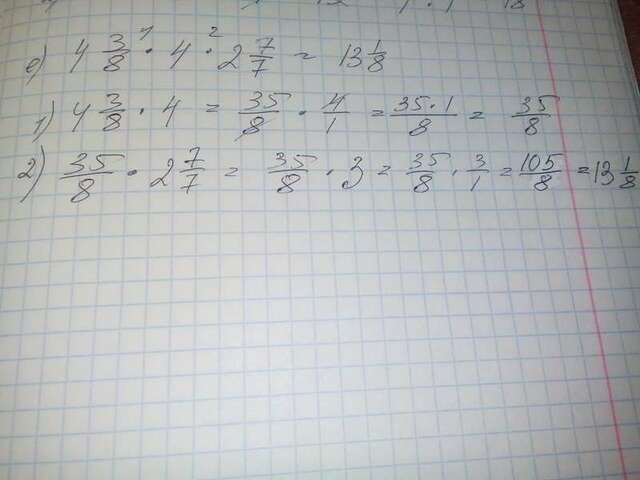 e) 4 3/8 · 4 · 2 7/7 = 13 1/8
1) 4 3/8 · 4 = 35/8 · 4/1 = 35·1/8 = 35/8
2) 35/8 · 2 7/7 = 35/8 · 3 = 35/8 · 3/1 = 105/8 = 13 1/8